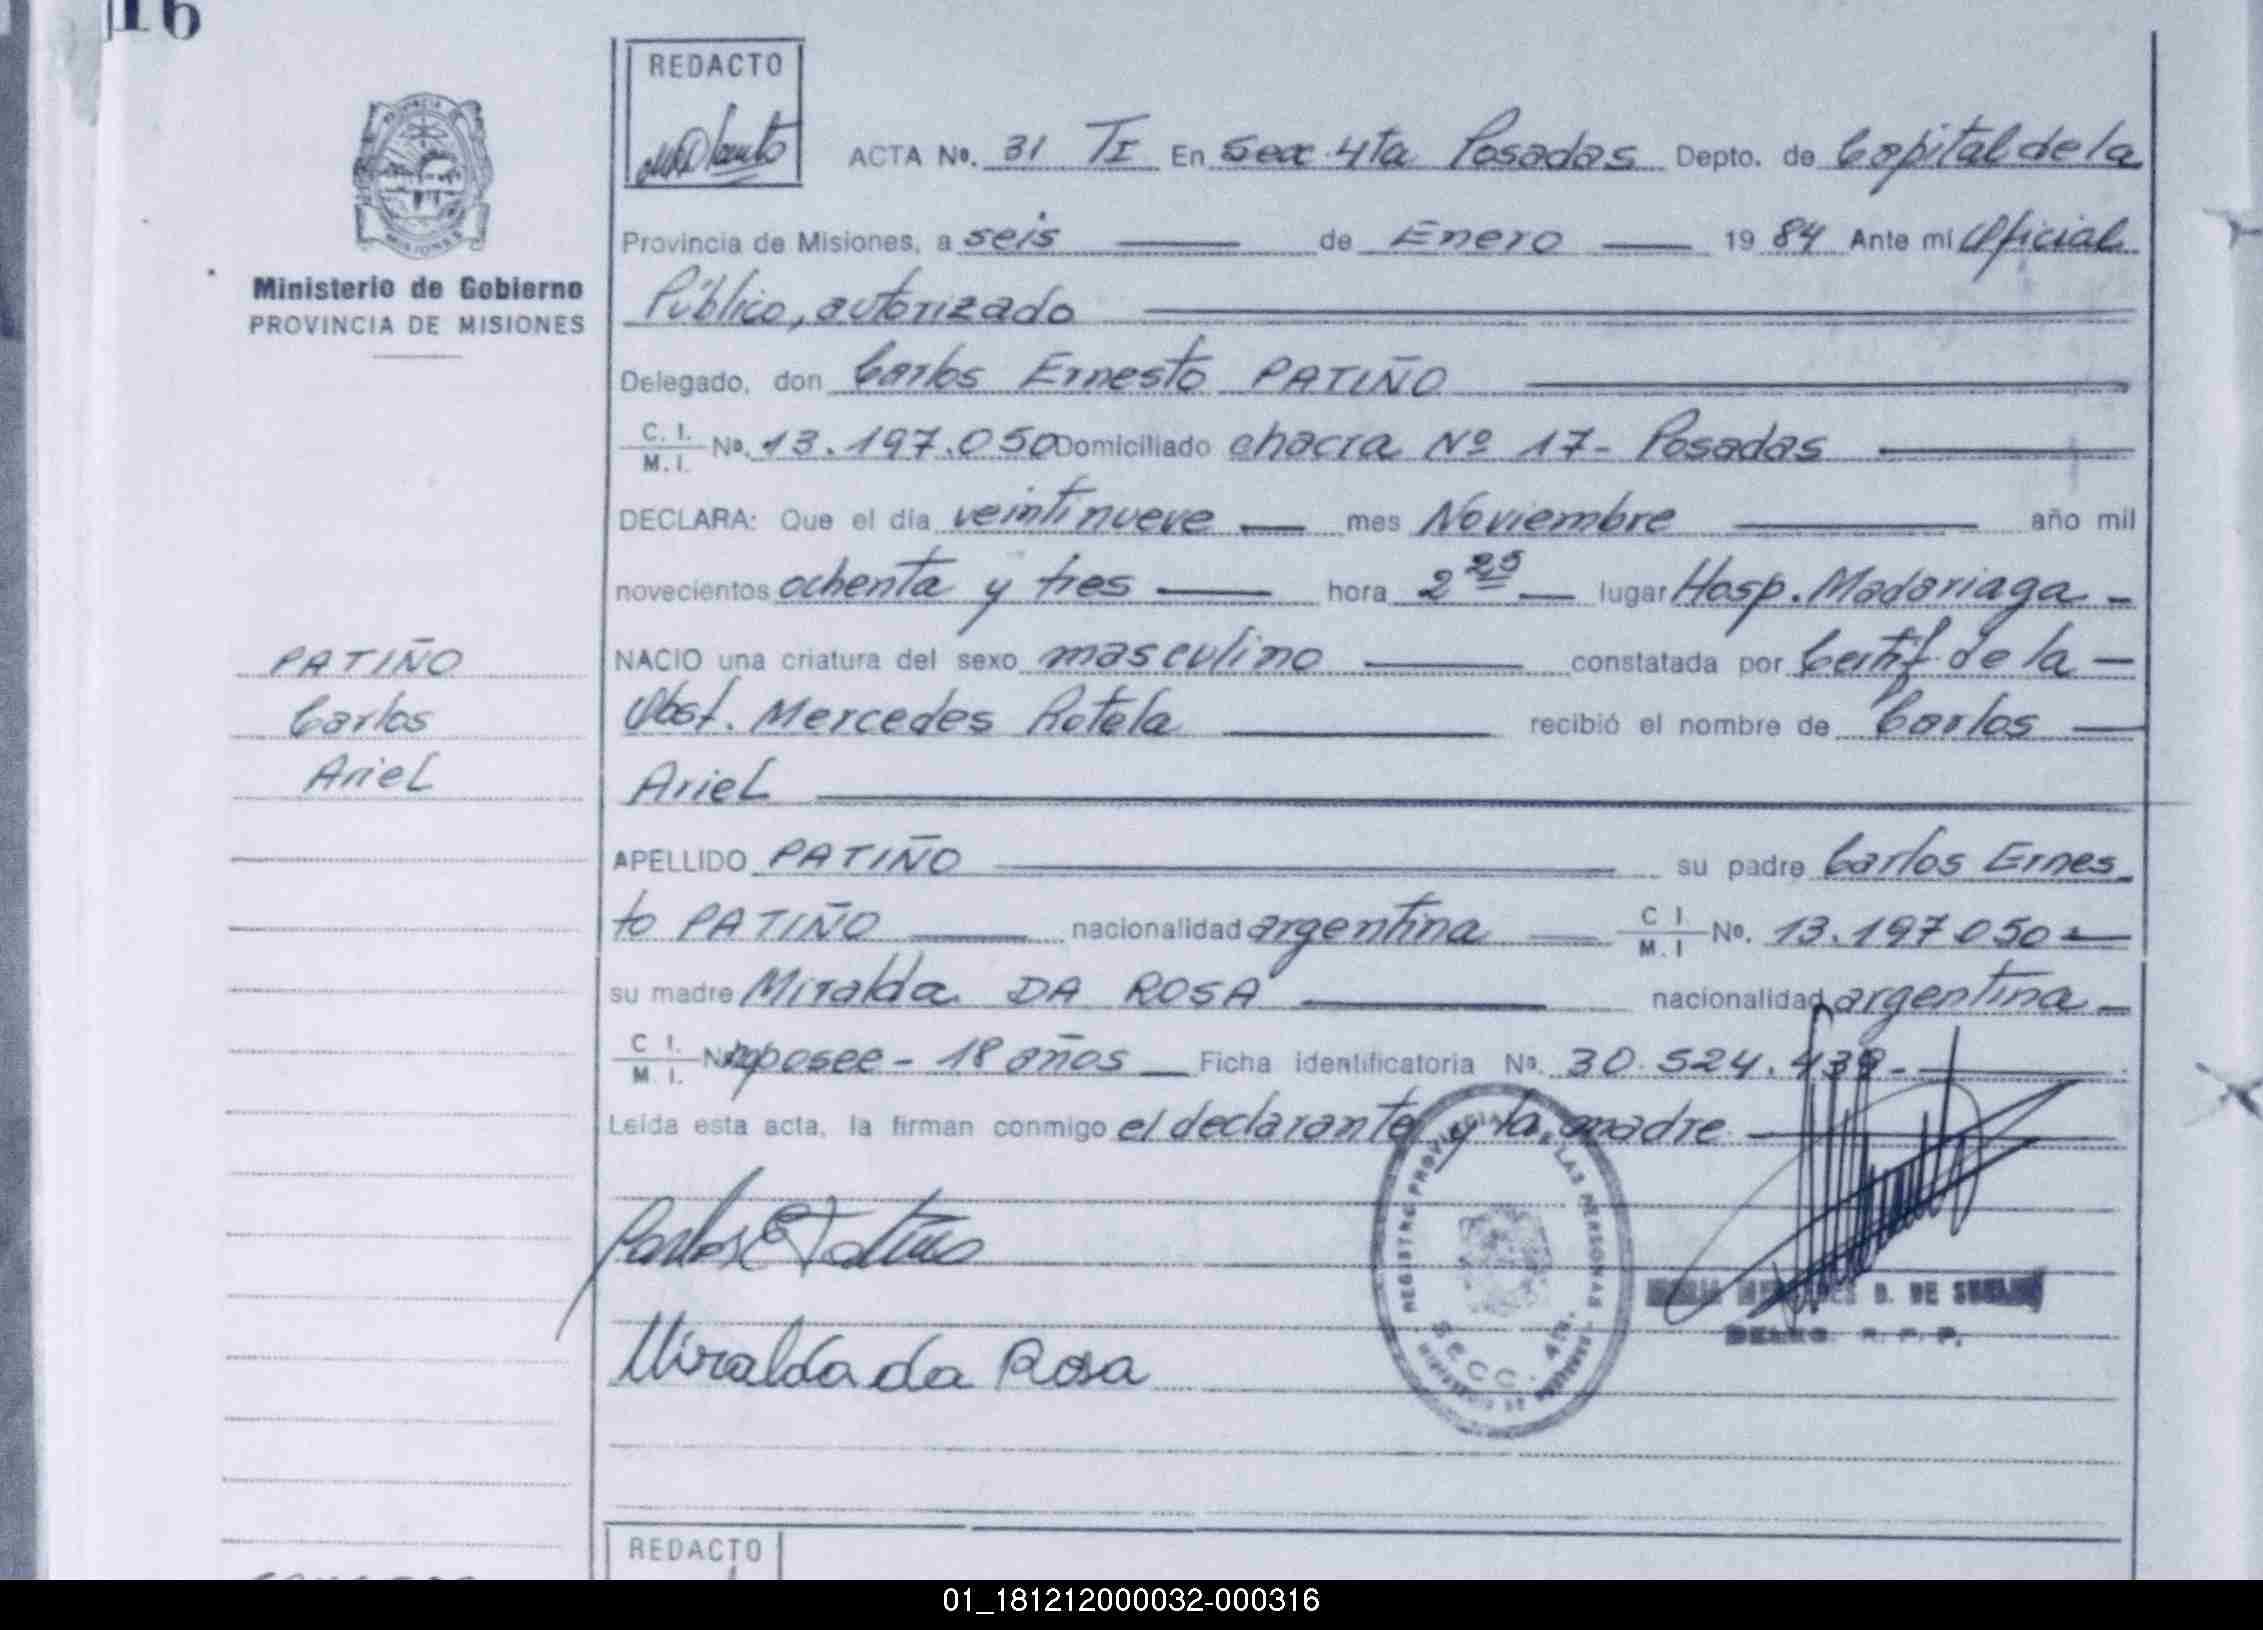 16
REDACTO
ACTA Nº. 31 TI En Secc 4ta Posadas Depto. de Capital de la
Provincia de Misiones, a seis de Enero 1984 Ante mi Oficial
Público, autorizado
Ministerio de Gobierno
PROVINCIA DE MISIONES
Delegado, don Carlos Ernesto PATIÑO
C. I.
M. I. Nº. 13.197.050 Domiciliado chacra Nº 17- Posadas
DECLARA: Que el día veintinueve mes Noviembre año mil
novecientos ochenta y tres hora 2 25 lugar Hosp. Madariaga -
NACIO una criatura del sexo masculino constatada por Certif. de la
Obst. Mercedes Rotela recibió el nombre de Carlos
Ariel
PATIÑO
Carlos
Ariel
APELLIDO PATIÑO su padre Carlos Ernes
to PATIÑO nacionalidad argentina C I
M. I Nº. 13.197.050
su madre Miralda DA ROSA nacionalidad argentina
C I.
M. I. No posee - 18 años Ficha identificatoria Nº. 30.524.439-
Leída esta acta, la firman conmigo el declarante y la madre
Carlos E Patiño
Miralda da Rosa
REGISTRO PROVINCIAL DE LAS PERSONAS
SECC. 4ta.
D. DE
R. P. P.
REDACTO
01_181212000032-000316